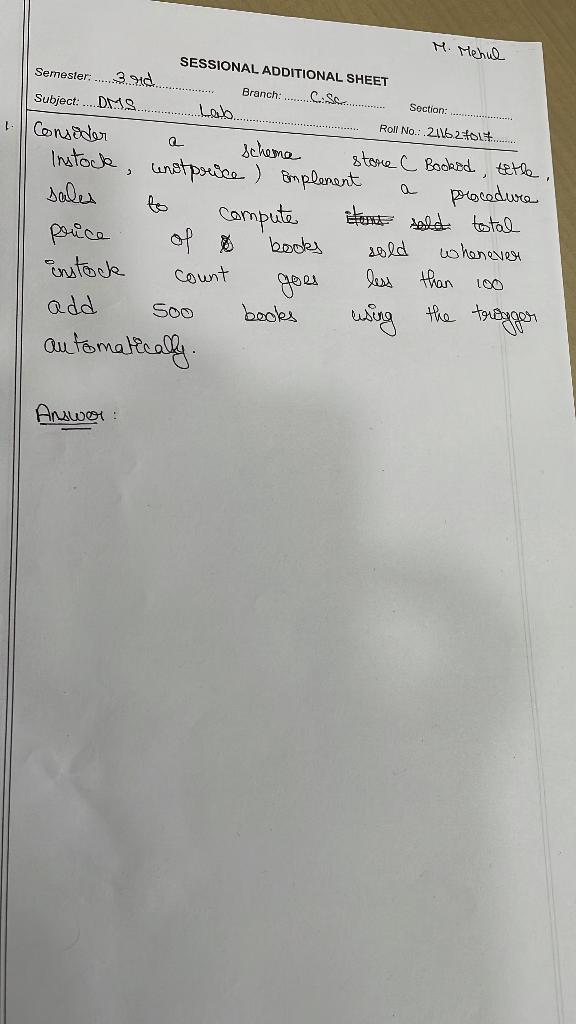 M. Mehul
SESSIONAL ADDITIONAL SHEET
Semester: 3rd Branch: C.Sc Section:
Subject: DMS Lab Roll No.: 211627017
1. Consider a schema store ( Bookid, title,
Instock, unitprice ) implement a procedure
sales to compute items sold total
price of books sold whenever
instock count goes less than 100
add 500 books using the trigger
automatically.
Answer :